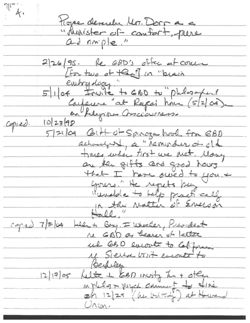 4.
Royce describes Mr. Dorr as a
"minister of comfort, pure
and simple."
2/26/95. Re GBD's offer at once
[for two of] in "brain
embryology."
5/1/04 Invite to GBD to "philosophical
Conference" at Royce's house (5/2/04) on
on religious Consciousness.
copied: 10/23/98
5/21/04 Gift of Spinoza book from GBD
acknowledged, a "reminder of old
times when first we met. Many
are the gifts and good hours
that I have owed to you &
yours." He regrets being
"unable to help practically
in the matter of Emerson
Hall."
copied 7/5/04 Letter to Benj. I. Wheeler, President
re GBD as bearer of letter
GBD enroute to California
Sierras visit enroute to
Berkeley
12/19/05 Letter to GBD inviting him & other
to dine
on 12/25 at Harvard
Union.